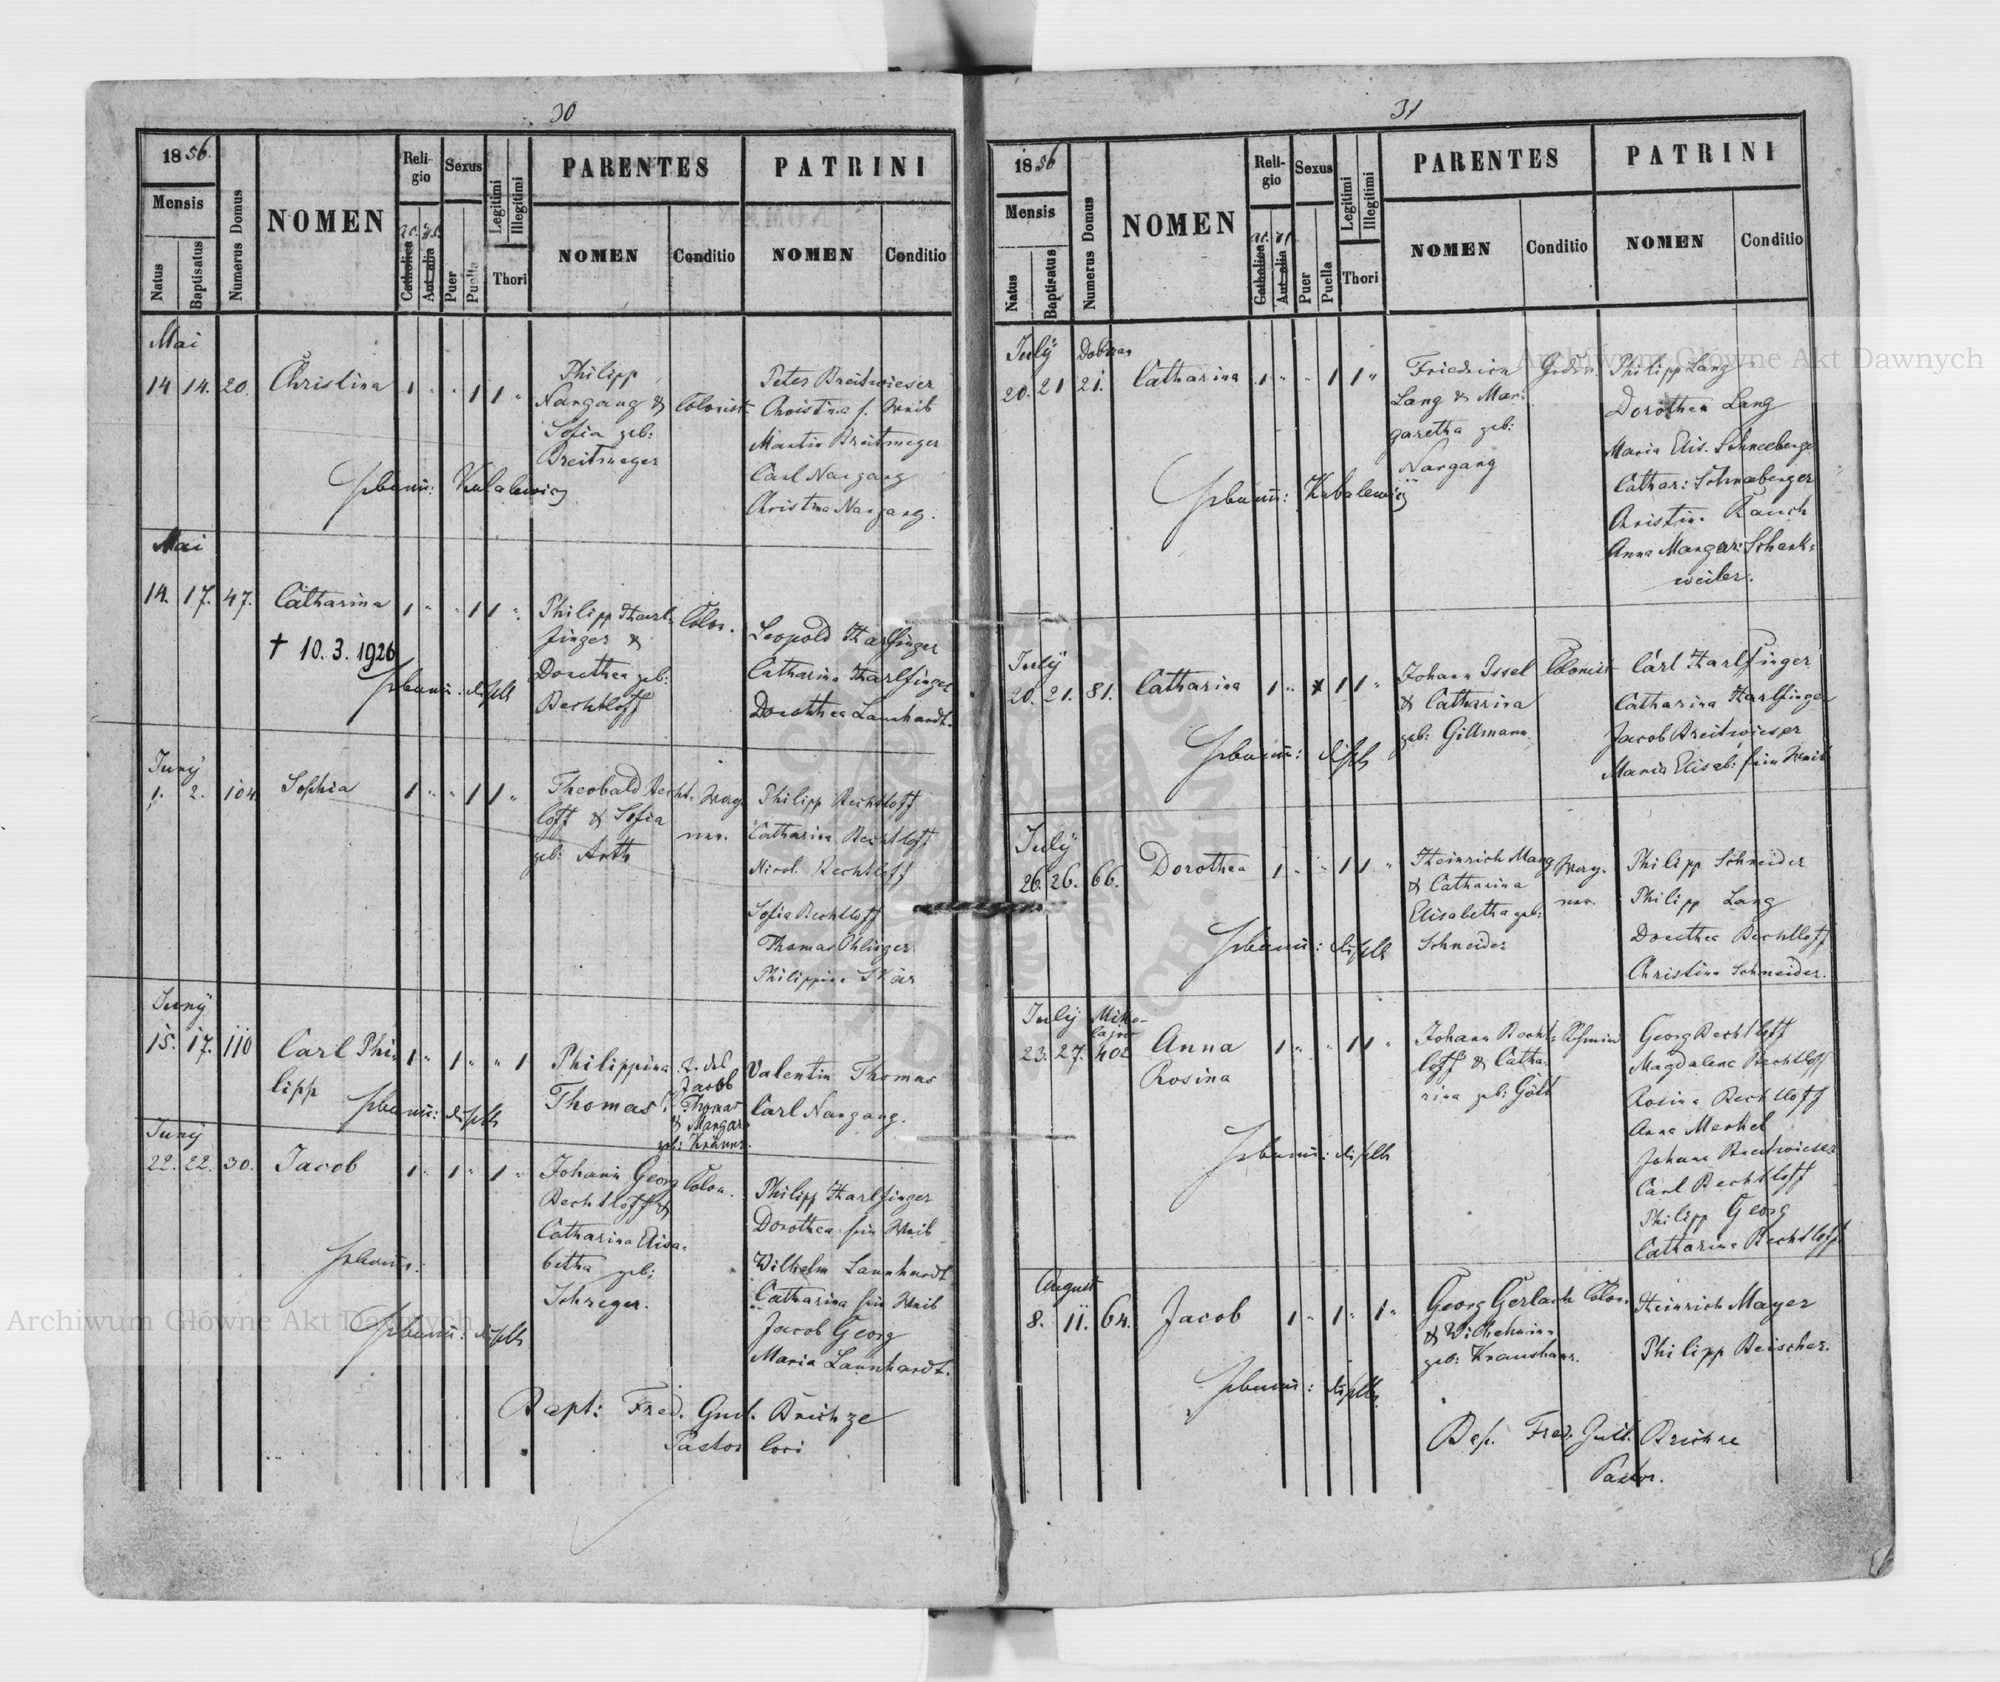 30
1856.
Mensis
Natus
Baptisatus
Numerus Domus
NOMEN
Religio
Catholica
Aut alia
Sexus
Puer
Puella
Legitimi
Illegitimi
Thori
PARENTES
NOMEN
Conditio
PATRINI
NOMEN
Conditio
Mai
14 14. 20. Christina 1 " " 1 1 "
Philipp
Nargang &
Sofia geb:
Breitmeger
Colonist
Peter Breitwieser
Christina s. Weib
Martin Breitmeger
Carl Nargang
Christina Nargang.
Hebamm: Kubalewicz
Mai
14. 17. 47. Catharina 1 " " 1 1 "
† 10.3.1926
Philipp Harl-
finger &
Dorothea geb:
Bechtloff
Colon.
Leopold Harlfinger
Catharina Harlfinger
Dorothea Launhardt.
Hebamm: dieselb
Juny
1. 2. 104. Sophia 1 " " 1 1 "
Theobald Becht-
loff & Sofia
geb: Arth
Wag-
ner.
Philipp Bechtloff
Catharina Bechtloff
Nicol. Bechtloff
Sofia Bechtloff
Thomas Ohlinger
Philippina
Juny
15. 17. 110 Carl Phi-
lipp
1 " 1 " " 1
Philippina
Thomas
T. des
Jacob
Thomas
& Margar:
geb:
Valentin Thomas
Carl Nargang.
Hebamm: dieselb
Juny
22. 22. 30. Jacob 1 " 1 " 1 "
Johann Georg
Bechtloff &
Catharina Elisa-
betha geb:
Schreger.
Colon.
Philipp Harlfinger
Dorothea sein Weib
Wilhelm Launhardt
Catharina sein Weib
Jacob Georg
Maria Launhardt.
Hebamm:
Hebamm: dieselb
Bapt: Fred. Gust. Brichze
Pastor loci
31
1856
Mensis
Natus
Baptisatus
Numerus Domus
NOMEN
Religio
Catholica
Aut alia
Sexus
Puer
Puella
Legitimi
Illegitimi
Thori
PARENTES
NOMEN
Conditio
PATRINI
NOMEN
Conditio
July
20. 21 21. Catharina 1 " " 1 1 "
Friedrich
Lang & Mar-
garetha geb:
Nargang
Philipp Lang
Dorothea Lang
Maria Elis. Schneeberger
Cathar: Schneeberger
Christin. Rauch
Anna Margar: Schank-
weiler.
Hebamm: Kubalewicz
July
20. 21. 81. Catharina 1 " 1 1 "
Johann Issel
& Catharina
geb: Gillmann
Colonist
Carl Harlfinger
Catharina Harlfinger
Jacob Breitwieser
Maria Elisab: sein Weib
Hebamm: dieselb
July
26. 26. 66. Dorothea 1 " " 1 1 "
Heinrich Mang
& Catharina
Elisabetha geb:
Schneider
Wag-
ner.
Philipp Schneider
Philipp Lang
Dorothea Bechtloff
Christina Schneider.
Hebamm: dieselb
July Miko-
lajow
23. 27. 402 Anna
Rosina
1 " " 1 1 "
Johann Becht-
loff & Catha-
rina geb: Gött
Georg Bechtloff
Magdalena Bechtloff
Rosina Bechtloff
Anna Merkel
Johann Breitwieser
Carl Bechtloff
Philipp Georg
Catharina Bechtloff
Hebamm: dieselb
August
8. 11. 64. Jacob 1 " 1 " 1 "
Georg Gerlach
& Wilhelmin-
geb: Kraushaar.
Colon.
Heinrich Mayer
Philipp Beischer.
Hebamm: dieselb
Bap. Fred. Gust. Brichze
Pastor.
Archiwum Główne Akt Dawnych
Archiwum Główne Akt Dawnych